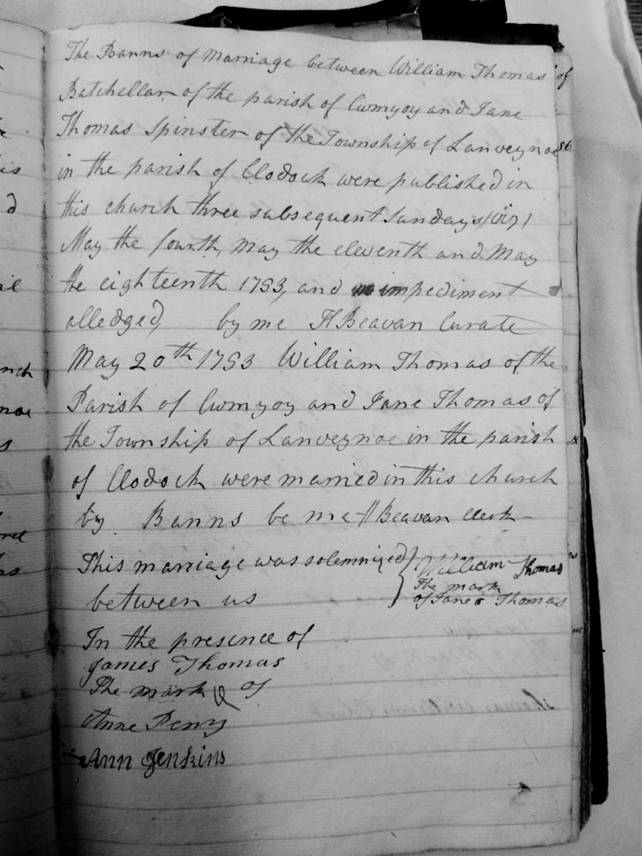 The Banns of Marriage between William Thomas
Batchellar of the parish of Cwmyoy and Jane
Thomas Spinster of the Township of Lanveynoe
in the parish of Clodock were published in
this church three subsequent Sundays (viz)
May the fourth, May the eleventh and May
the eighteenth 1753, and impediment
alledged, by me H Beavan Curate
May 20th 1753 William Thomas of the
Parish of Cwmyoy and Jane Thomas of
the Township of Lanveynoe in the parish
of Clodock were married in this church
by Banns be me H Beavan clerk
This marriage was solemnized } William Thomas
between us The mark
of Jane Thomas
In the presence of
James Thomas
The mark of
Anne Penry
Ann Jenkins